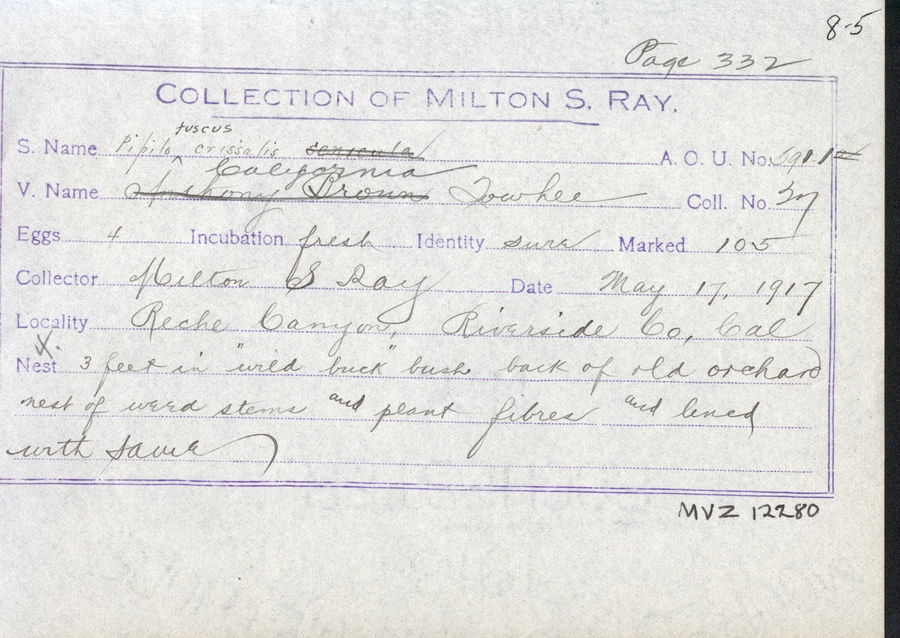 8-5
Page 332
COLLECTION OF MILTON S. RAY.
fuscus
S. Name Pipilo ^ crissalis senicula A. O. U. No. 591.1
California
V. Name Anthony Brown Towhee Coll. No. 37
Eggs 4 Incubation fresh Identity sure Marked 105
Collector Milton S Ray Date May 17, 1917
Locality Reche Canyon, Riverside Co, Cal
X.
Nest 3 feet in "wild buck" bush back of old orchard
nest of weed stems and plant fibres and lined
with same
MVZ 12280